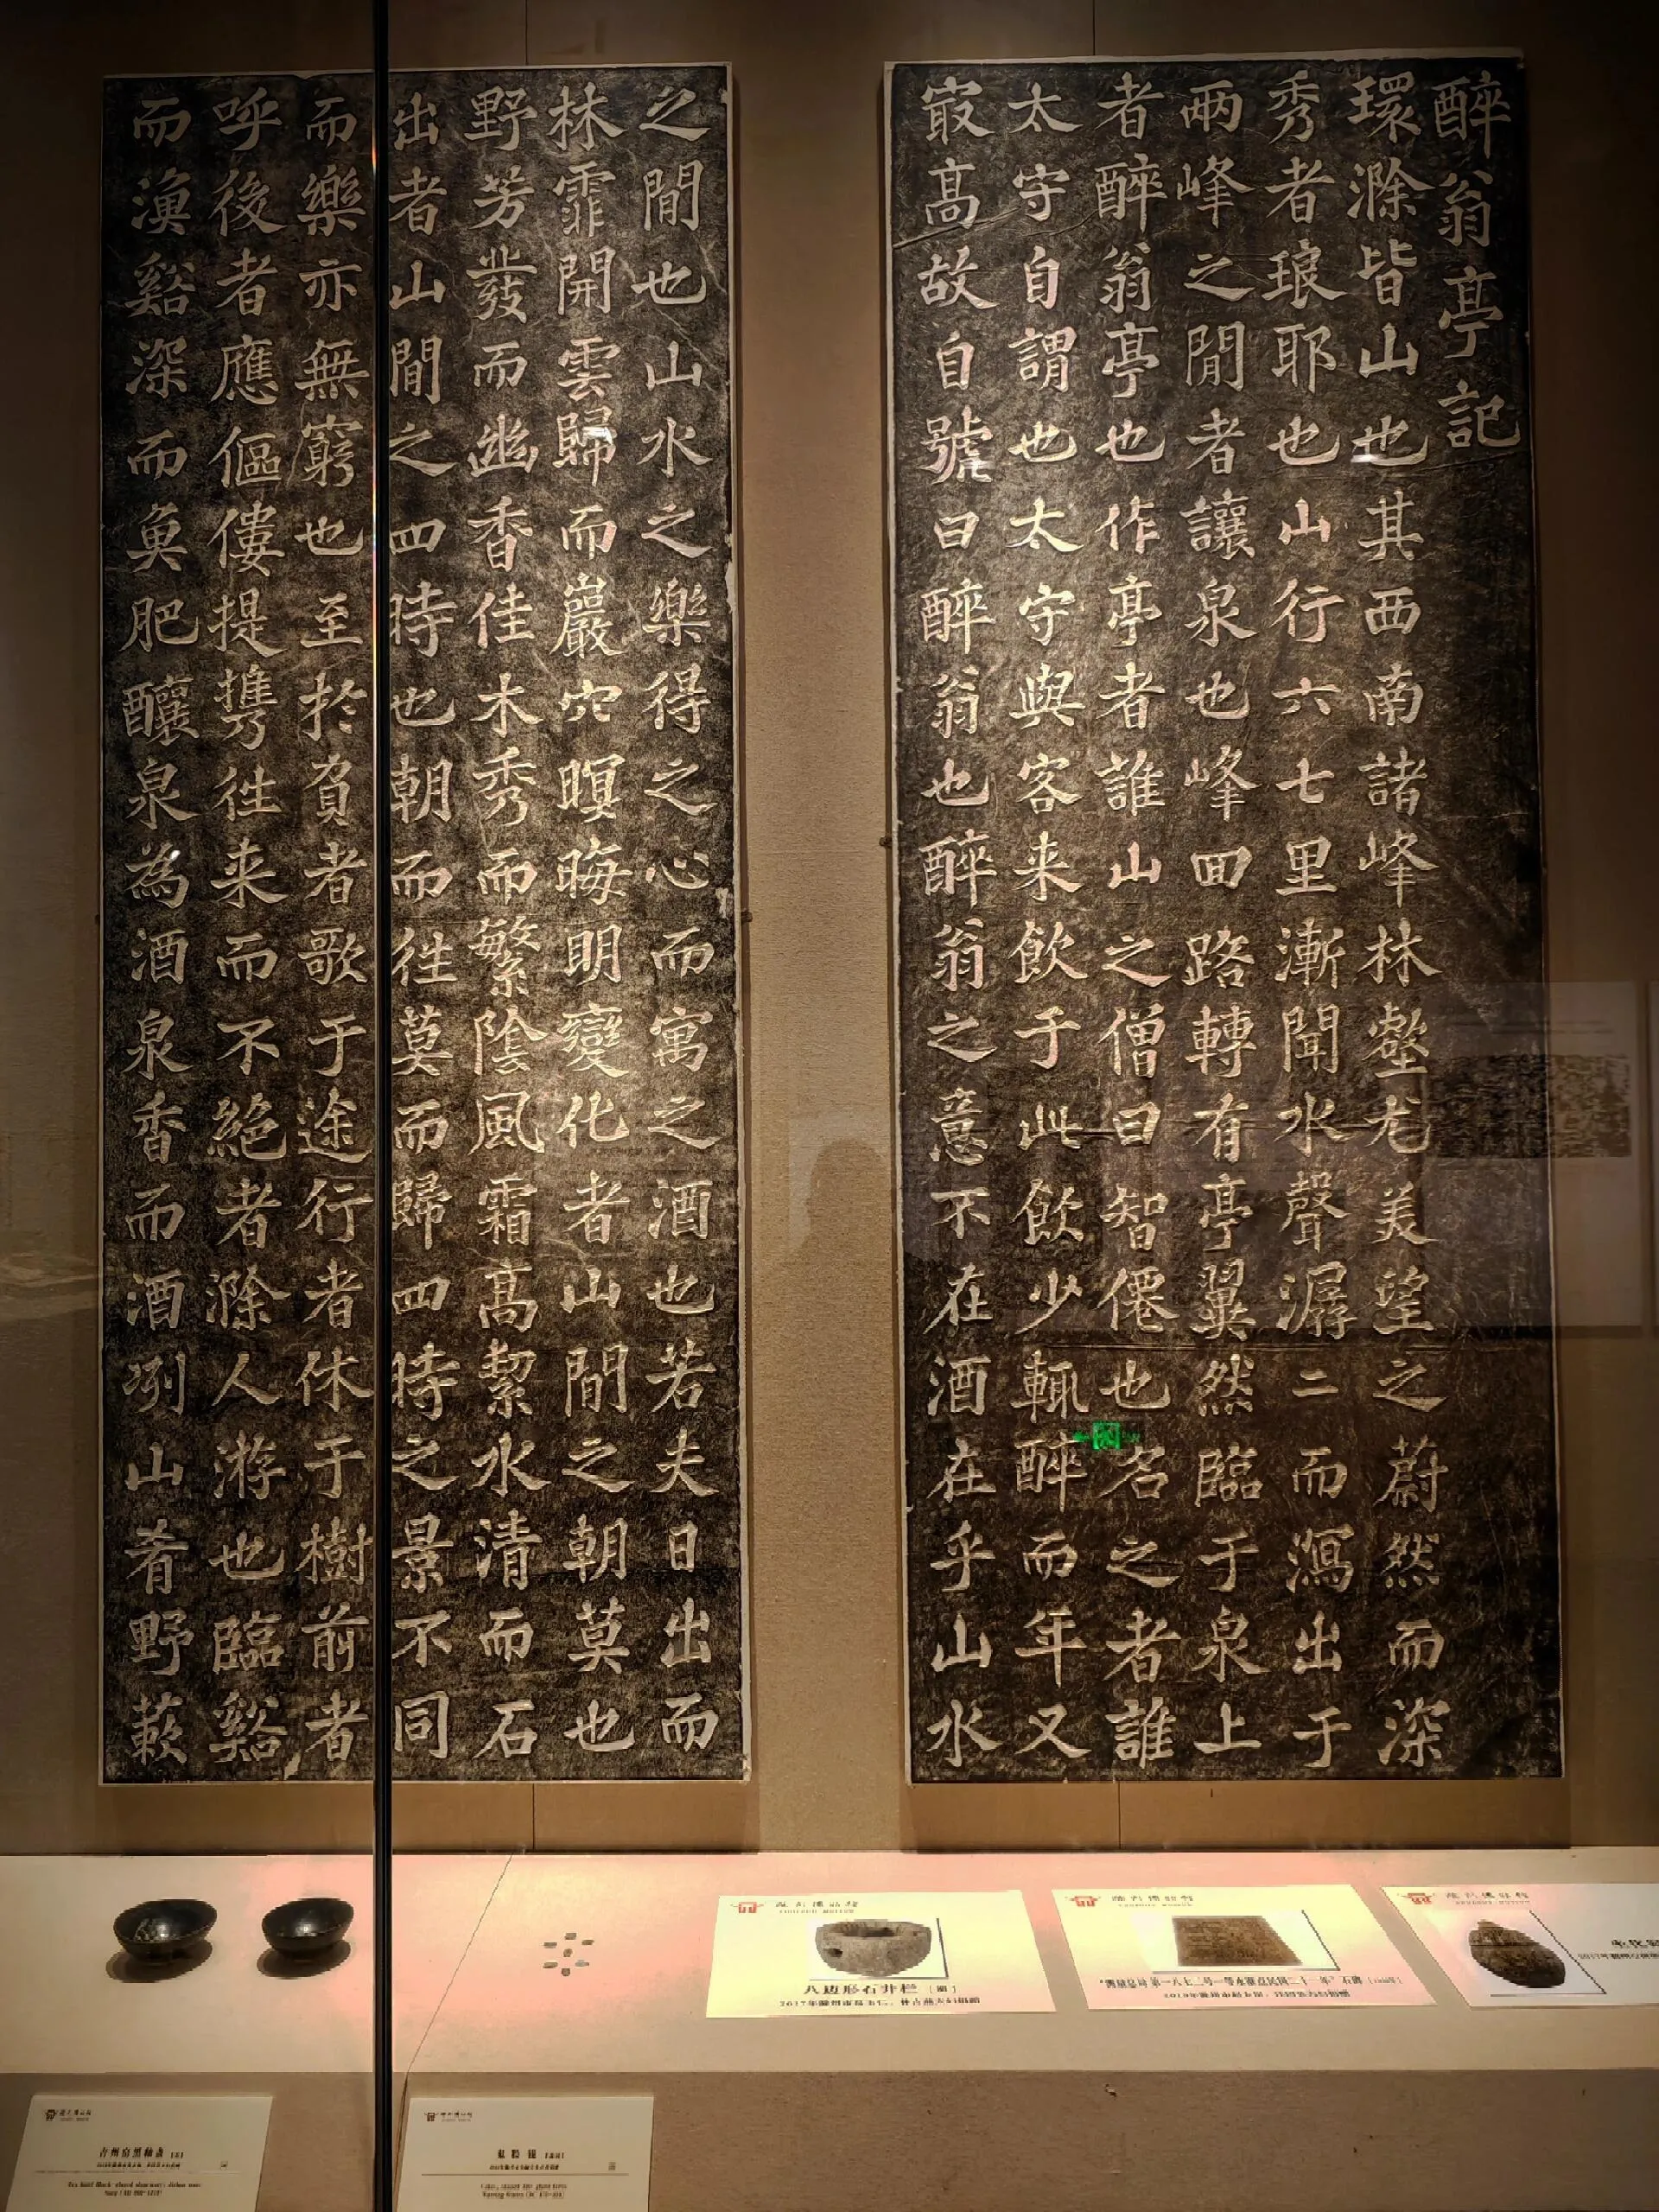 醉翁亭記
環滁皆山也其西南諸峰林壑尤美望之蔚然而深
秀者琅耶也山行六七里漸聞水聲潺二而瀉出于
兩峰之間者讓泉也峰回路轉有亭翼然臨于泉上
者醉翁亭也作亭者誰山之僧曰智僊也名之者誰
太守自謂也太守與客来飲于此飲少輒醉而年又
㝡髙故自號曰醉翁也醉翁之意不在酒在乎山水
之間也山水之樂得之心而寓之酒也若夫日出而
林霏開雲歸而巖穴暝晦明變化者山間之朝莫也
野芳發而幽香佳木秀而繁陰風霜髙絜水清而石
出者山間之四時也朝而往莫而歸四時之景不同
而樂亦無窮也至於負者歌于途行者休于樹前者
呼後者應傴僂提攜往来而不絕者滁人游也臨谿
而漁谿深而魚肥釀泉為酒泉香而酒洌山肴野蔌
八边形石井栏
吉州窑黑釉盏